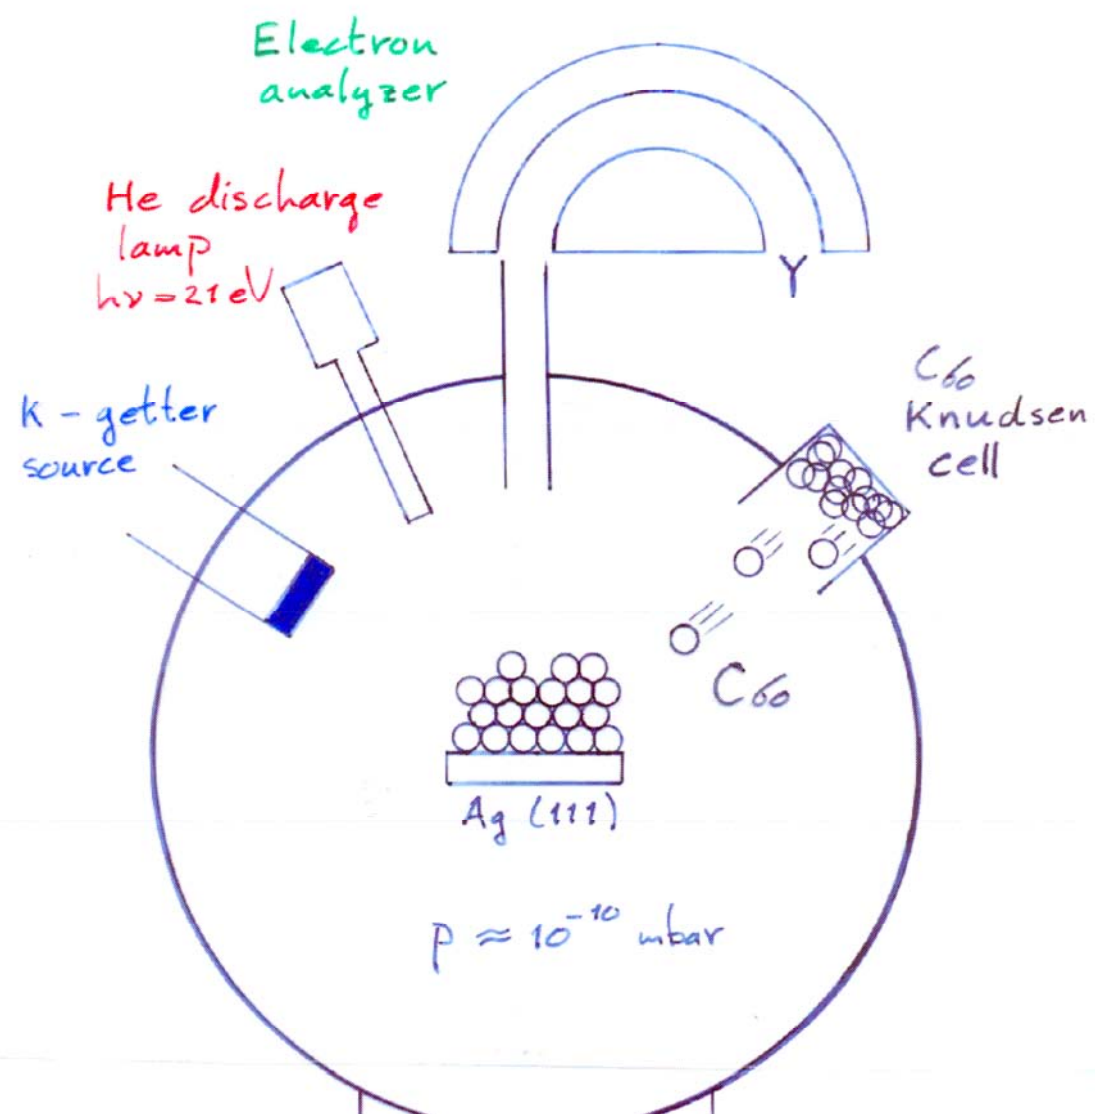 Electron
analyzer
He discharge
lamp
hν = 21 eV
K - getter
source
C₆₀
Knudsen
cell
C₆₀
Ag (111)
p ≈ 10⁻¹⁰ mbar